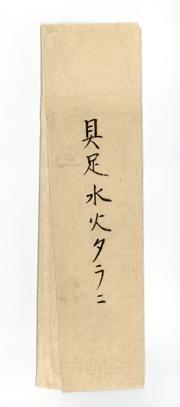 具足水火タラニ